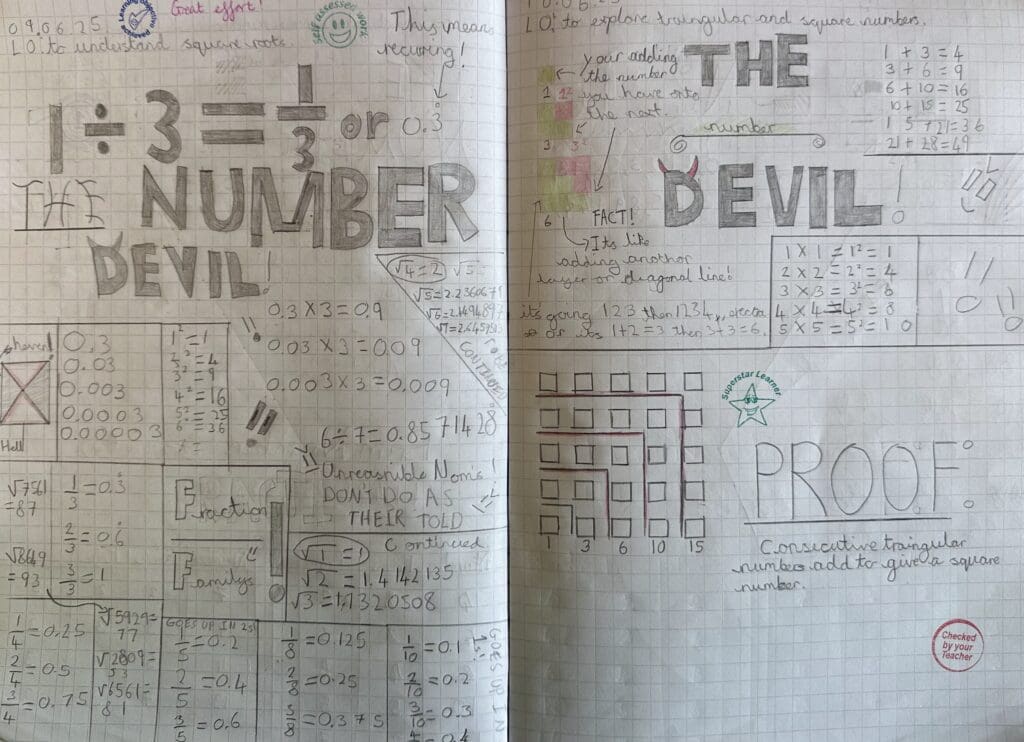 09.06.25
Great effort!
Self assessed work
LO: to understand square roots.
This means
recuring!
1 ÷ 3 = 1/3 or 0.3̇
THE
NUMBER
DEVIL!
√4 = 2 √5 =
√5 = 2.2360671
√7 = 2.6457513
CONTINUED
0.3 × 3 = 0.9
0.03 × 3 = 0.09
0.003 × 3 = 0.009
6 ÷ 7 = 0.8571428
!!
heven!
Hell
0.3
0.03
0.003
0.0003
0.00003
1² = 1
2² = 4
3² = 9
4² = 16
5² = 25
6² = 36
Unreasnible Nom's!
DONT DO AS
THEIR TOLD
√7561
= 87
√8649
= 93
1/3 = 0.3̇
2/3 = 0.6̇
3/3 = 1
Fraction
Familys
!
√1 = 1
Continued
√2 = 1.4142135
√3 = 1.7320508
1/4 = 0.25
2/4 = 0.5
3/4 = 0.75
√5929 =
77
√2809 =
53
√6561 =
81
GOES UP IN 2s
1/5 = 0.2
2/5 = 0.4
3/5 = 0.6
1/8 = 0.125
2/8 = 0.25
3/8 = 0.375
1/10 = 0.1
2/10 = 0.2
3/10 = 0.3
GOES UP IN
1s!
LO: to explore traingular and square numbers.
your adding
the number
you have onto
the next.
1 1²
3 3²
6
THE
number
DEVIL!
1 + 3 = 4
3 + 6 = 9
6 + 10 = 16
10 + 15 = 25
1 5 + 21 = 36
21 + 28 = 49
FACT!
Its like
adding another
layer or diagonal line!
its going 123 then 1234,
or its 1+2=3 then 3+3=6.
1 × 1 = 1² = 1
2 × 2 = 2² = 4
3 × 3 = 3² = 6
4 × 4 = 4² = 8
5 × 5 = 5² = 10
!!
!!
Superstar Learner
1 3 6 10 15
PROOF:
Consicutive traingular
numbers add to give a square
number.
Checked
by your
Teacher